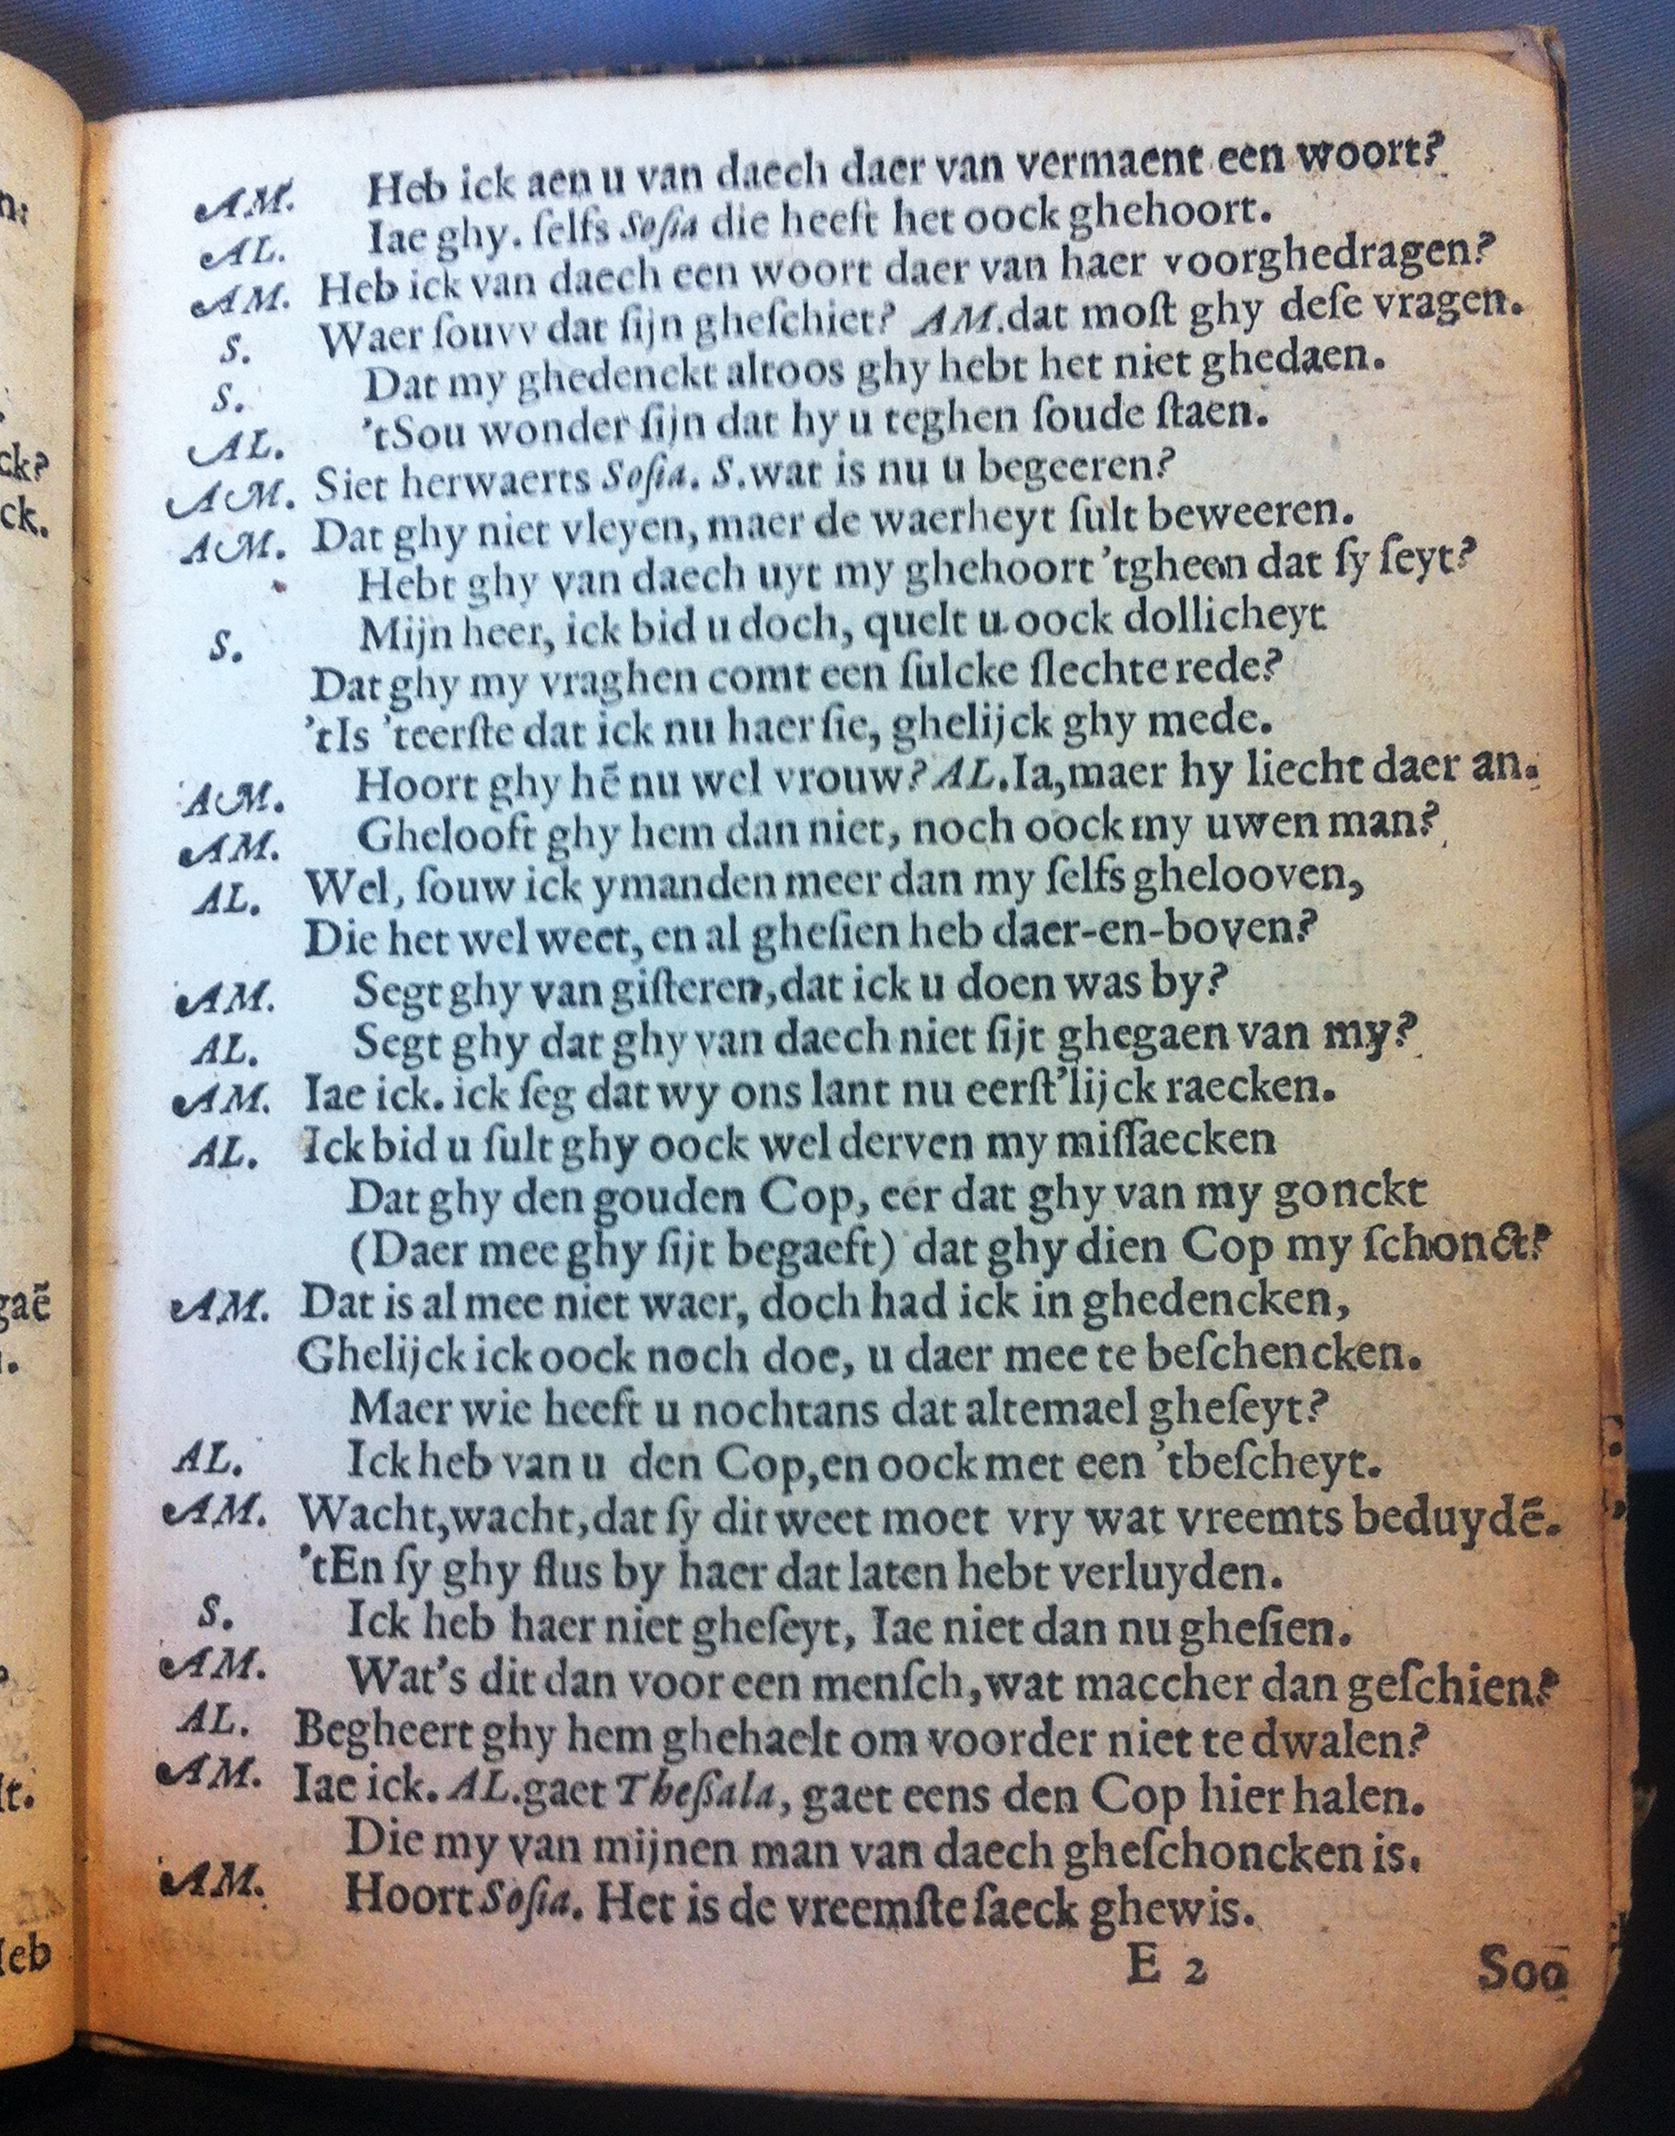 AM. Heb ick aen u van daech daer van vermaent een woort?
AL. Iae ghy. ſelfs Soſia die heeft het oock ghehoort.
AM. Heb ick van daech een woort daer van haer voorghedragen?
S. Waer ſouvv dat ſijn gheſchiet? AM.dat moſt ghy deſe vragen.
S. Dat my ghedenckt altoos ghy hebt het niet ghedaen.
AL. 'tSou wonder ſijn dat hy u teghen ſoude ſtaen.
AM. Siet herwaerts Soſia. S.wat is nu u begeeren?
AM. Dat ghy niet vleyen, maer de waerheyt ſult beweeren.
Hebt ghy van daech uyt my ghehoort 'tgheen dat ſy ſeyt?
S. Mijn heer, ick bid u doch, quelt u oock dollicheyt
Dat ghy my vraghen comt een ſulcke ſlechte rede?
'tIs 'teerſte dat ick nu haer ſie, ghelijck ghy mede.
AM. Hoort ghy hē nu wel vrouw? AL.Ia,maer hy liecht daer an.
AM. Ghelooft ghy hem dan niet, noch oock my uwen man?
AL. Wel, ſouw ick ymanden meer dan my ſelfs ghelooven,
Die het wel weet, en al gheſien heb daer-en-boven?
AM. Segt ghy van giſteren,dat ick u doen was by?
AL. Segt ghy dat ghy van daech niet ſijt ghegaen van my?
AM. Iae ick. ick ſeg dat wy ons lant nu eerſt'lijck raecken.
AL. Ick bid u ſult ghy oock wel derven my miſſaecken
Dat ghy den gouden Cop, eer dat ghy van my gonckt
(Daer mee ghy ſijt begaeft) dat ghy dien Cop my ſchonct?
AM. Dat is al mee niet waer, doch had ick in ghedencken,
Ghelijck ick oock noch doe, u daer mee te beſchencken.
Maer wie heeft u nochtans dat altemael gheſeyt?
AL. Ick heb van u den Cop,en oock met een 'tbeſcheyt.
AM. Wacht,wacht,dat ſy dit weet moet vry wat vreemts beduydē.
'tEn ſy ghy flus by haer dat laten hebt verluyden.
S. Ick heb haer niet gheſeyt, Iae niet dan nu gheſien.
AM. Wat's dit dan voor een menſch,wat maccher dan geſchien?
AL. Begheert ghy hem ghehaelt om voorder niet te dwalen?
AM. Iae ick. AL.gaet Theſſala, gaet eens den Cop hier halen.
Die my van mijnen man van daech gheſchoncken is.
AM. Hoort Soſia. Het is de vreemſte ſaeck ghewis.
E 2 Soo